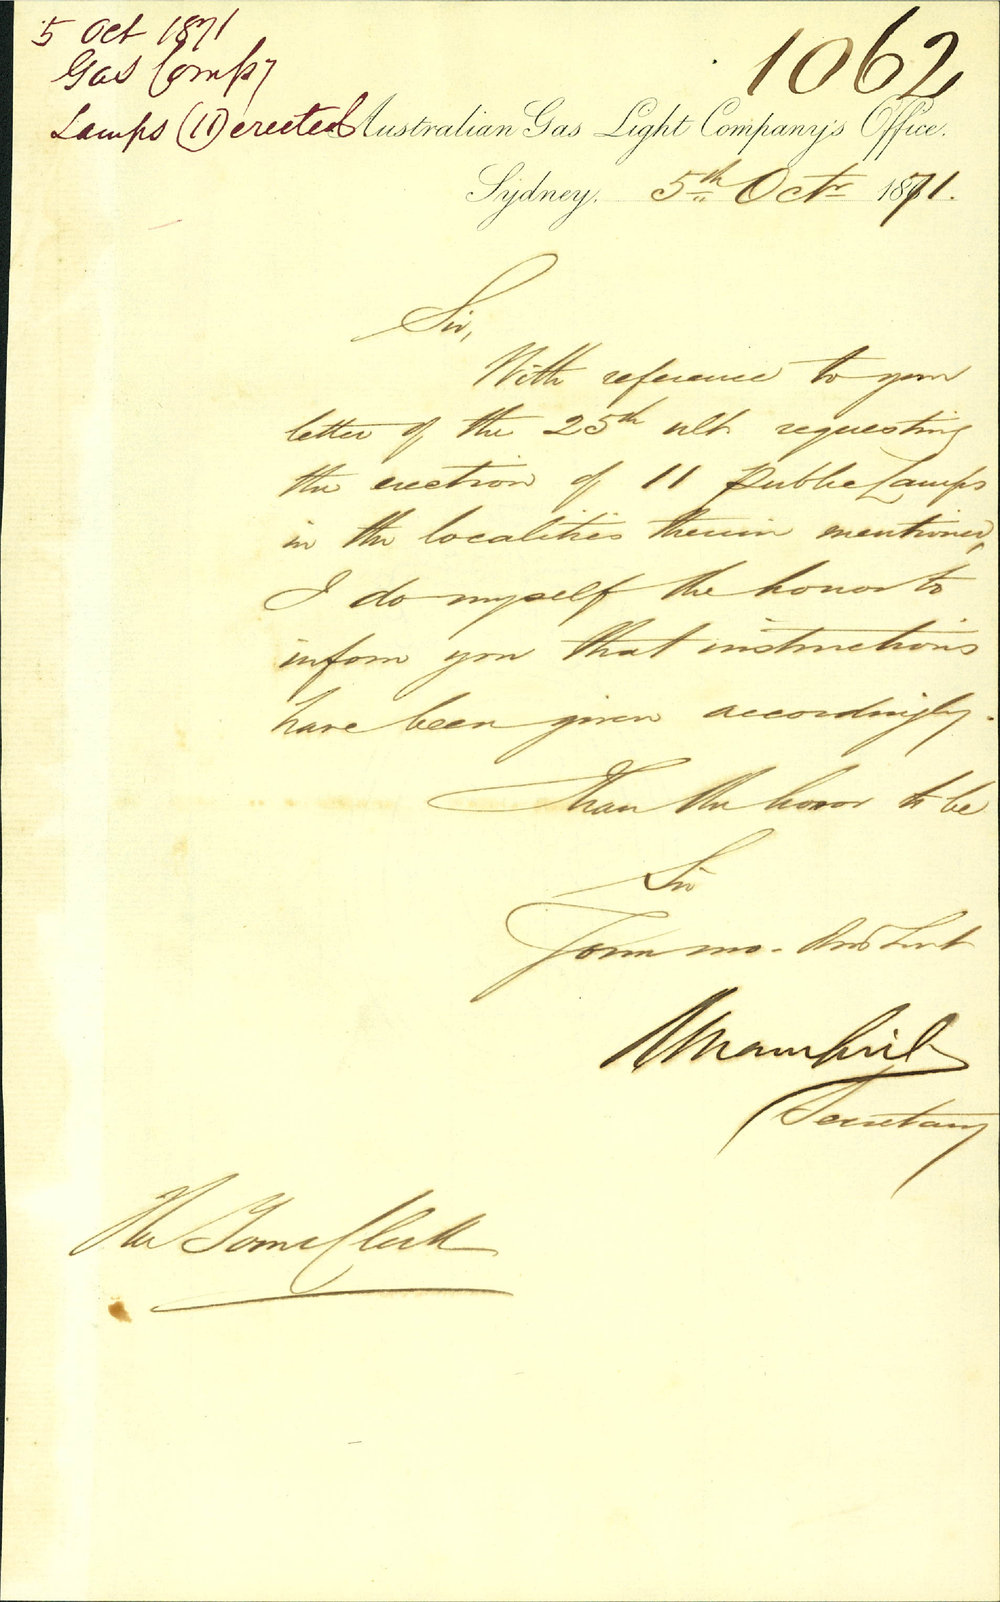 5 Oct 1871
Gas Compy
Lamps (11) erected
1062
Australian Gas Light Company's Office.
Sydney. 5th Octr 1871.
Sir,
With reference to your
letter of the 25th ult requesting
the erection of 11 Public Lamps
in the localities therein mentioned,
I do myself the honor to
inform you that instructions
have been given accordingly.
I have the honor to be
Sir
Your mo. Obt Servt
Secretary
The Town Clerk